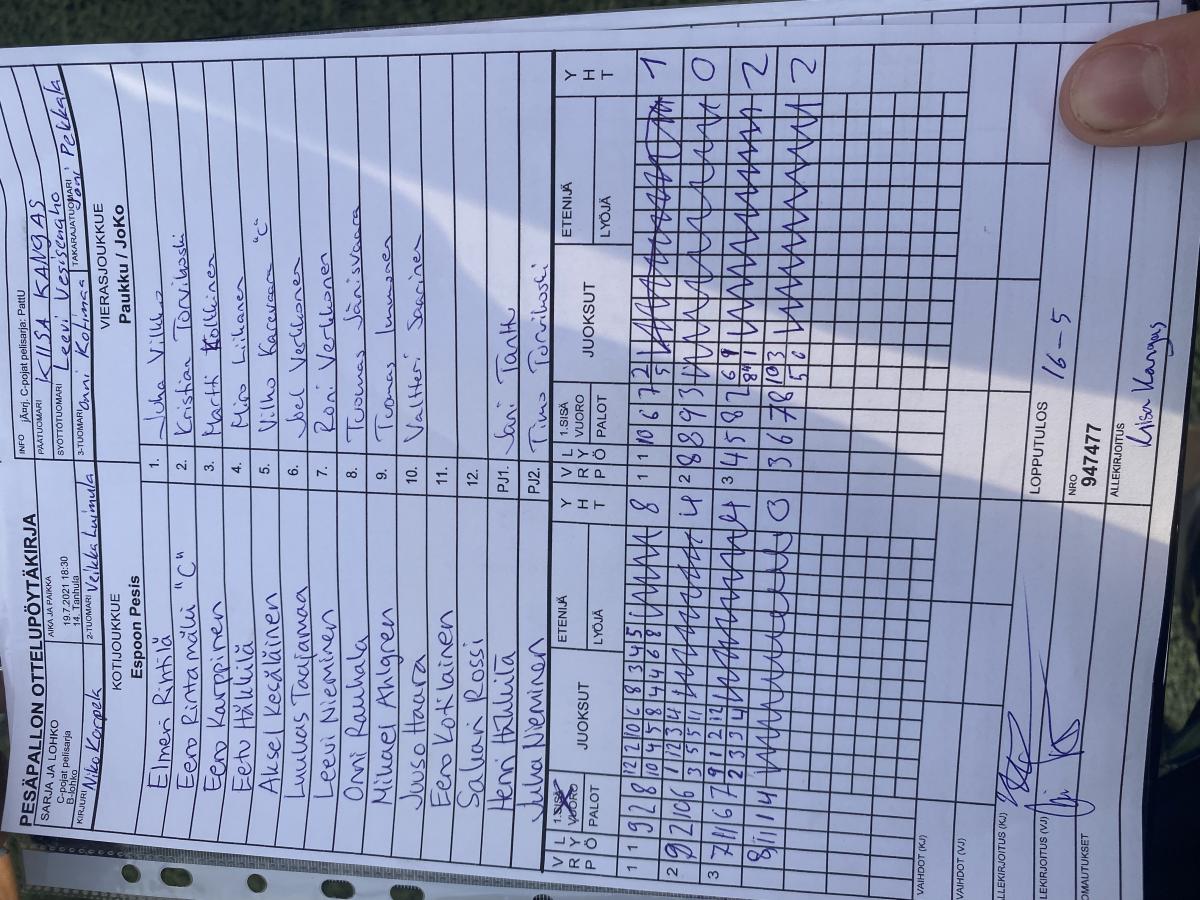 PESÄPALLON OTTELUPÖYTÄKIRJA
SARJA JA LOHKO
C-pojat pelisarja
B-lohko
AIKA JA PAIKKA
19.7.2021 18:30
14. Tanhula
INFO jÄnrj. C-pojat pelisarja: PattU
PÄÄTUOMARI KIISA KANGAS
SYÖTTÖTUOMARI Leevi Vesisenaho
KIRJURI Niko Korpek
2-TUOMARI Veikka Luimula
3-TUOMARI Onni Kotimaa
TAKARAJATUOMARI Joni Pekkala
KOTIJOUKKUE
Espoon Pesis
VIERASJOUKKUE
Paukku / JoKo
Elmeri Rintilä 1. Juha Vilkko
Eero Rintamäki "C" 2. Kristian Torvikoski
Eero Karppinen 3. Martti Kolkkinen
Eetu Häkkilä 4. Miro Liikanen
Aksel Kecäläinen 5. Vilho Karavaara "C"
Luukas Taajamaa 6. Joel Verkkonen
Leevi Nieminen 7. Roni Verkkonen
Onni Rauhala 8. Tuomas Jänisvaara
Mikael Ahlgren 9. Tuomas Immonen
Juuso Haara 10. Valtteri Saarinen
Eero Kotilainen 11.
Sakari Rossi 12.
Henri Häkkilä PJ1. Jari Tanttu
Juha Nieminen PJ2. Timo Torvikoski
VRP LYÖ 1.SISÄ VUORO PALOT JUOKSUT ETENIJÄ LYÖJÄ YHT VRP LYÖ 1.SISÄ VUORO PALOT JUOKSUT ETENIJÄ LYÖJÄ YHT
1 1 9 2 8 12 12 10 6 8 3 4 5 8 1 1 10 6 7 2 1 1
10 4 5 8 4 4 6 8 5
2 9 2 10 6 1 12 3 4 4 2 8 8 9 3 0
3 5 5 11
3 7 11 6 7 9 1 2 12 4 3 4 5 8 2 6 9 2
2 3 3 4 8 4 1
8 11 14 0 3 6 7 8 10 3 2
5 0
VAIHDOT (KJ)
VAIHDOT (VJ)
ALLEKIRJOITUS (KJ)
LOPPUTULOS 16-5
LEKIRJOITUS (VJ)
NRO
947477
OMAUTUKSET
ALLEKIRJOITUS
Kiisa Kangas